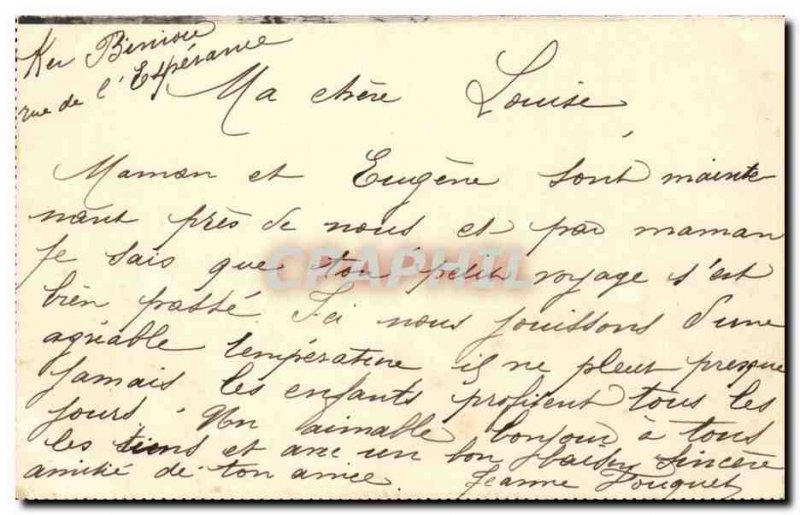 Ker Biniou
rue de l'Espérance
Ma chère Louise,
Maman et Eugène sont mainte
nant près de nous et par maman
je sais que ton petit voyage s'est
bien passé. Ici nous jouissons d'une
agréable température il ne pleut presque
jamais les enfants profitent tous les
jours. Un aimable bonjour à tous
les tiens et avec un bon baiser sincère
amitié de ton amie. Jeanne Pouquet
CPAPHIL